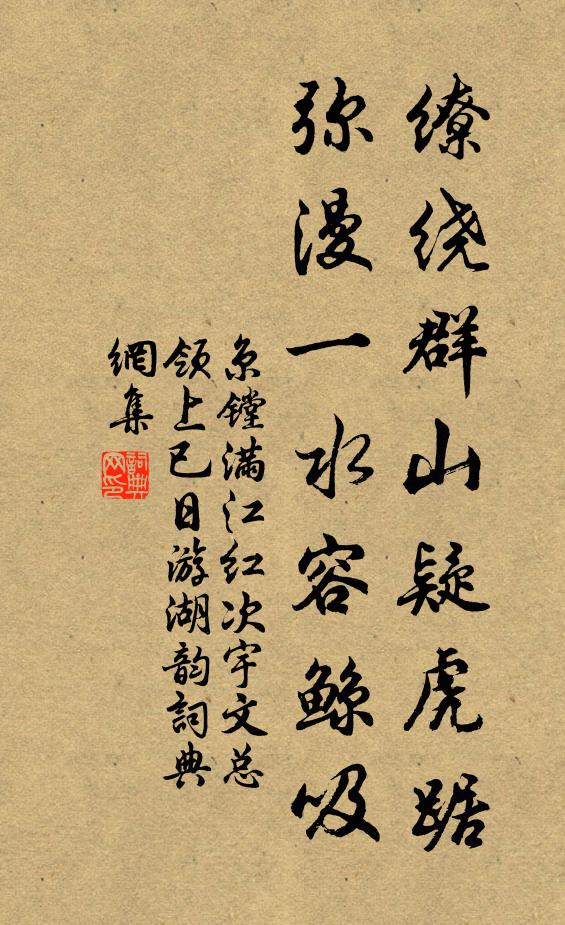 缭绕群山疑虎踞
弥漫一水容鲸吸
京镗满江红次宇文总
领上巳日游湖韵詞典
網集
詞典網印